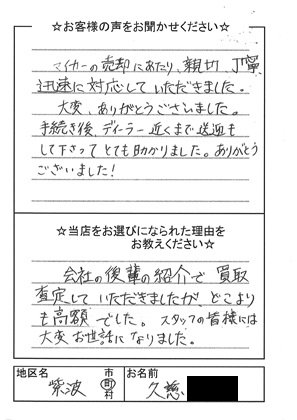 ☆お客様の声をお聞かせください☆
マイカーの売却にあたり、親切、丁寧、
迅速に対応していただきました。
大変、ありがとうございました。
手続き後、ディーラー近くまで送迎も
して下さってとても助かりました。ありがとう
ございました!
☆当店をお選びになられた理由を
お教えください☆
会社の後輩の紹介で買取
査定していただきましたが、どこより
も高額でした。スタッフの皆様には
大変お世話になりました。
地区名 紫波 市町村 お名前 久慈